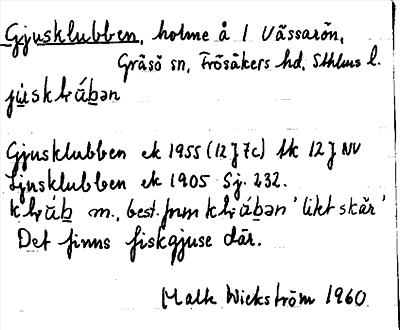 Gjusklubben, holme å 1 Vässarön,
Gräsö sn, Frösåkers hd, Sthlms l.
jùsklúb̲ən
Gjusklubben ek 1955 (12J 7c) tk 12J NV
Ljusklubben ek 1905 Sj. 232.
klúb̲ m., best. form klúb̲ən 'litet skär'
Det finns fiskgjuse där.
Malk Wickström 1960